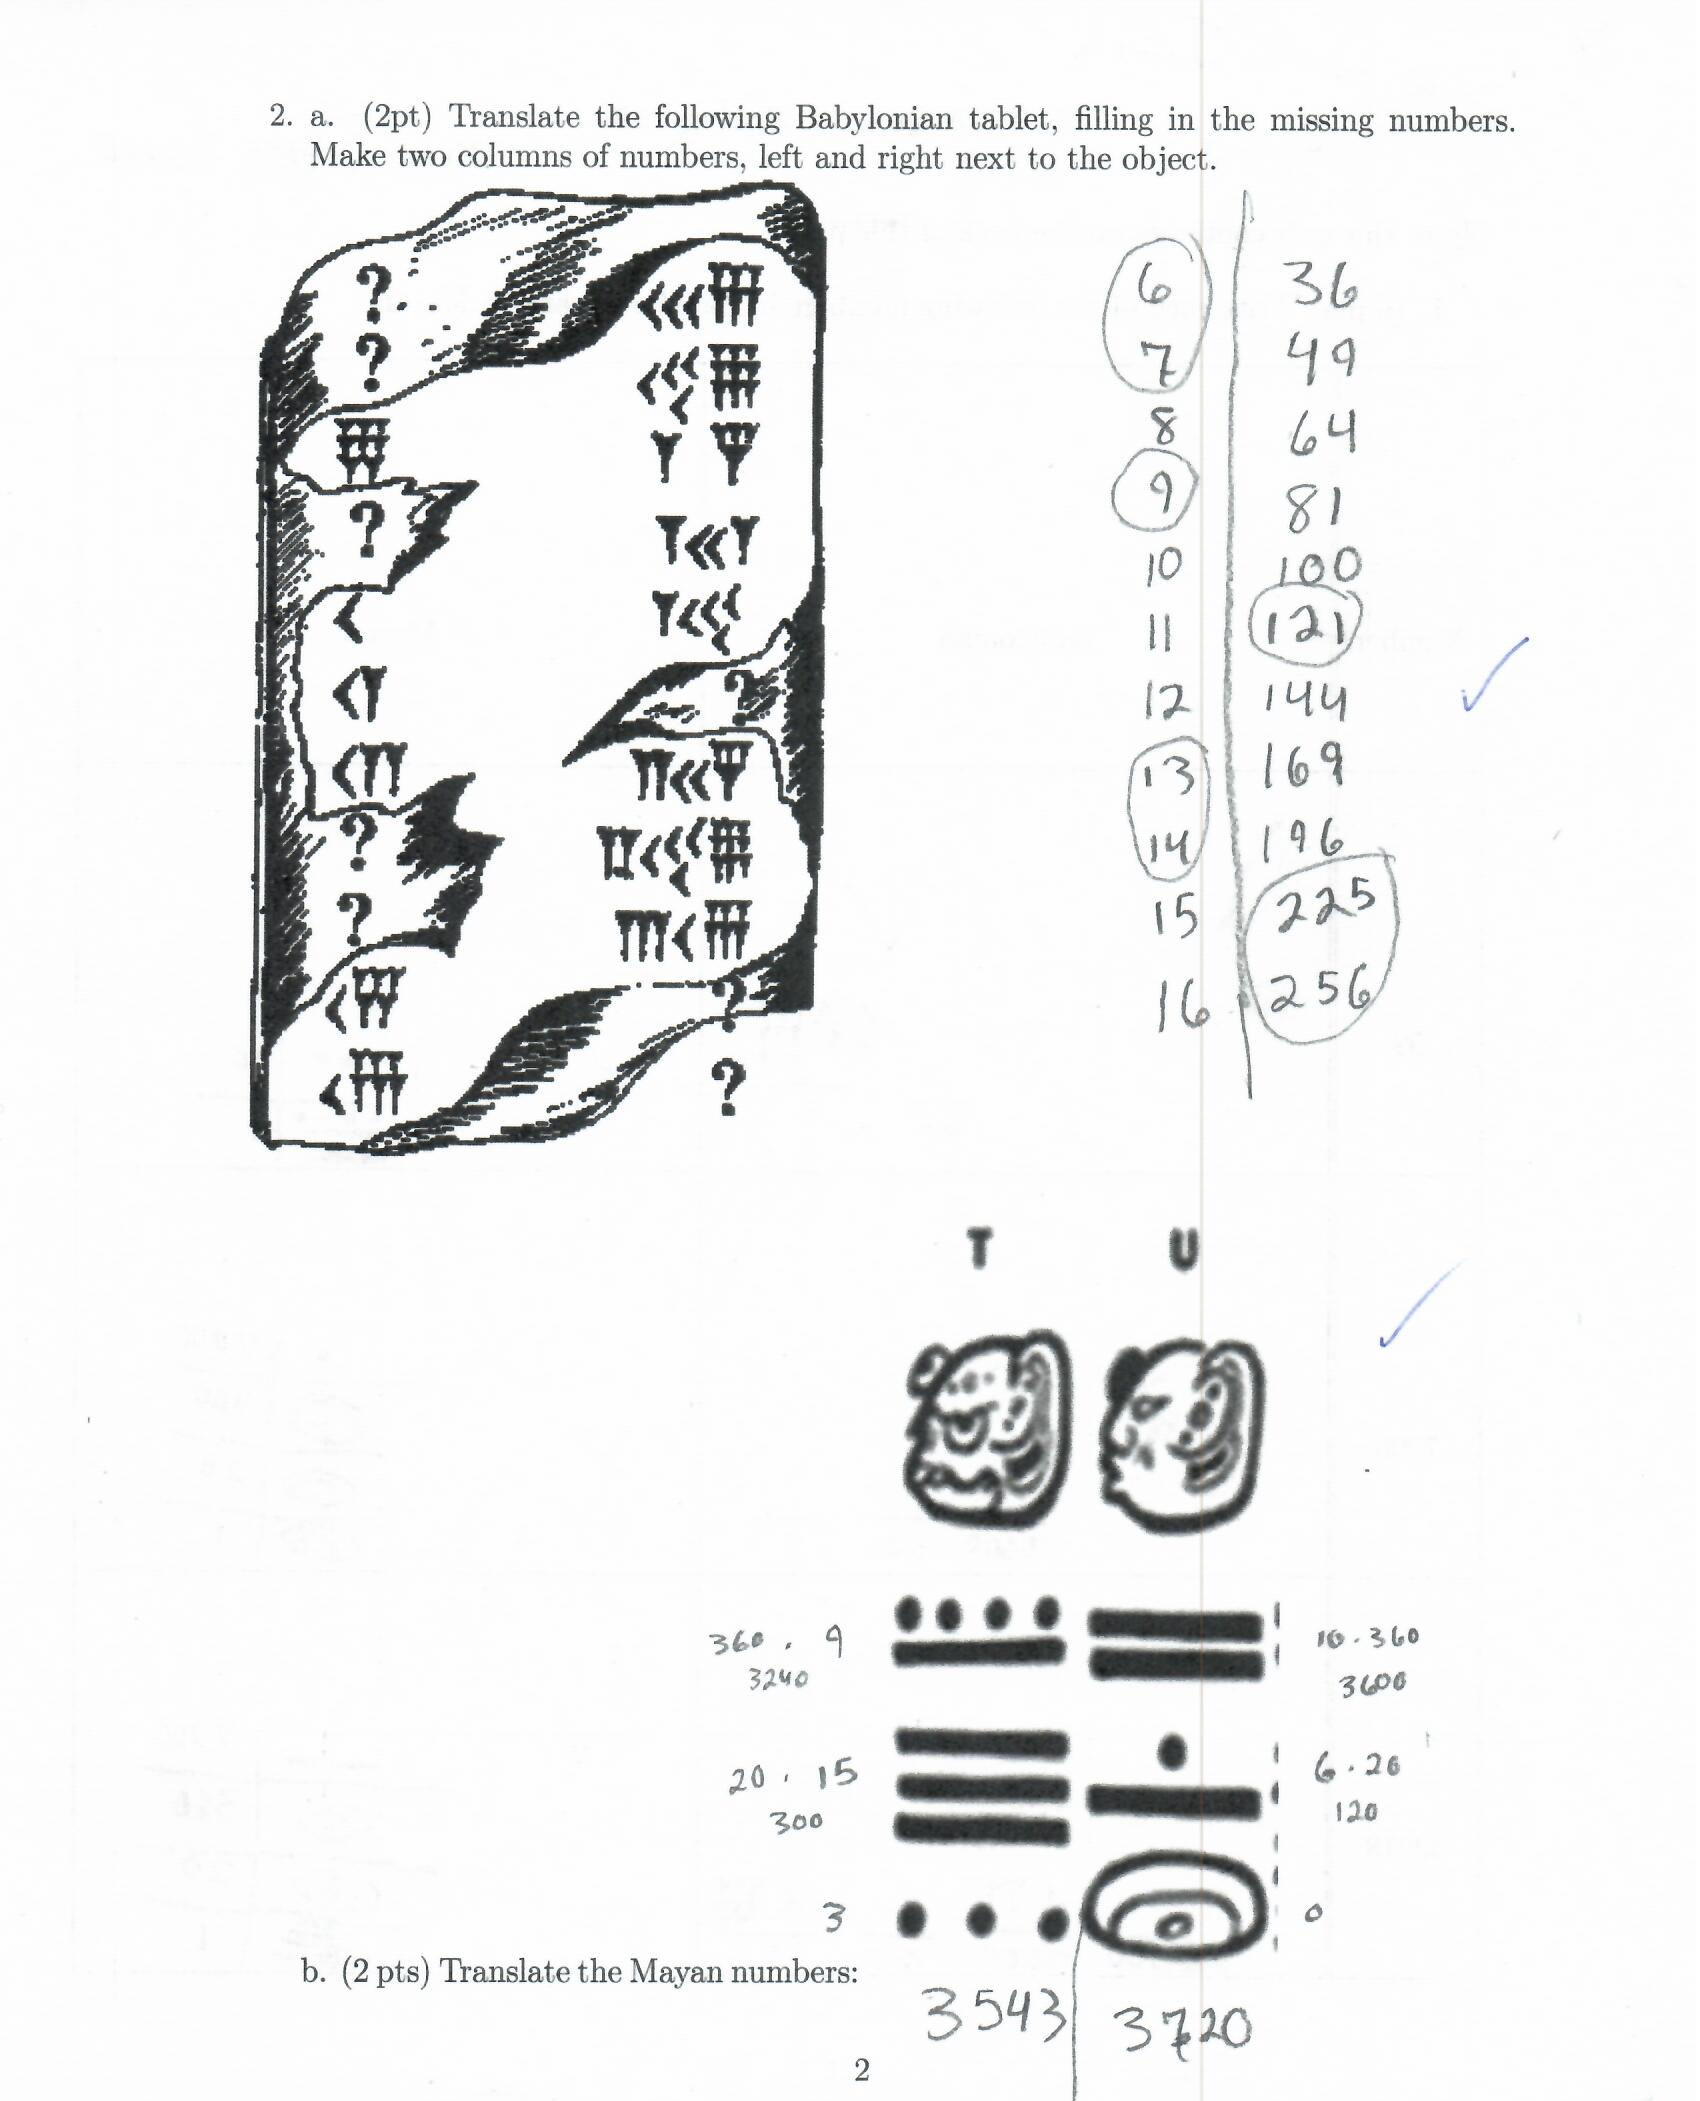 2. a. (2pt) Translate the following Babylonian tablet, filling in the missing numbers.
Make two columns of numbers, left and right next to the object.
? 𒌋𒌋𒌋𒐚
? 𒐏𒐞
𒐜 𒁹 𒐘
? 𒁹𒌋𒌋𒁹
𒌋 𒁹𒐏
𒌋𒁹 ?
𒌋𒈫 𒈫𒌋𒌋𒐘
? 𒈫𒐏𒐞
? 𒐈𒌋𒐚
𒌋𒐙 ?
𒌋𒐚 ?
6 36
7 49
8 64
9 81
10 100
11 121
12 144
13 169
14 196
15 225
16 256
T U
360 . 9 10 . 360
3240 3600
20 . 15 6 . 20
300 120
3 0
b. (2 pts) Translate the Mayan numbers:
3543 3720
2